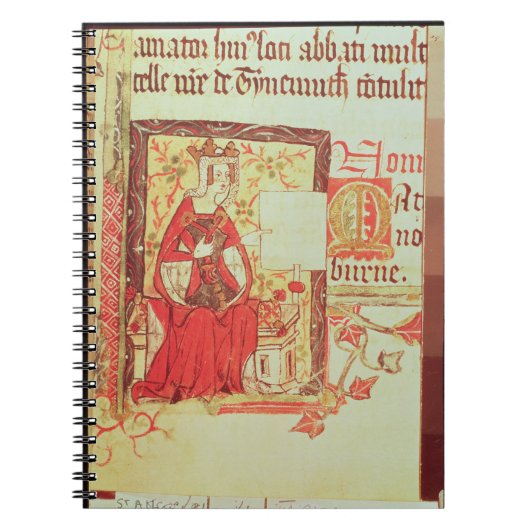 amator hui' loci abbati mult
celle nr̄e de Tynemuth cōtulit
Dom
M
At
no
burne.